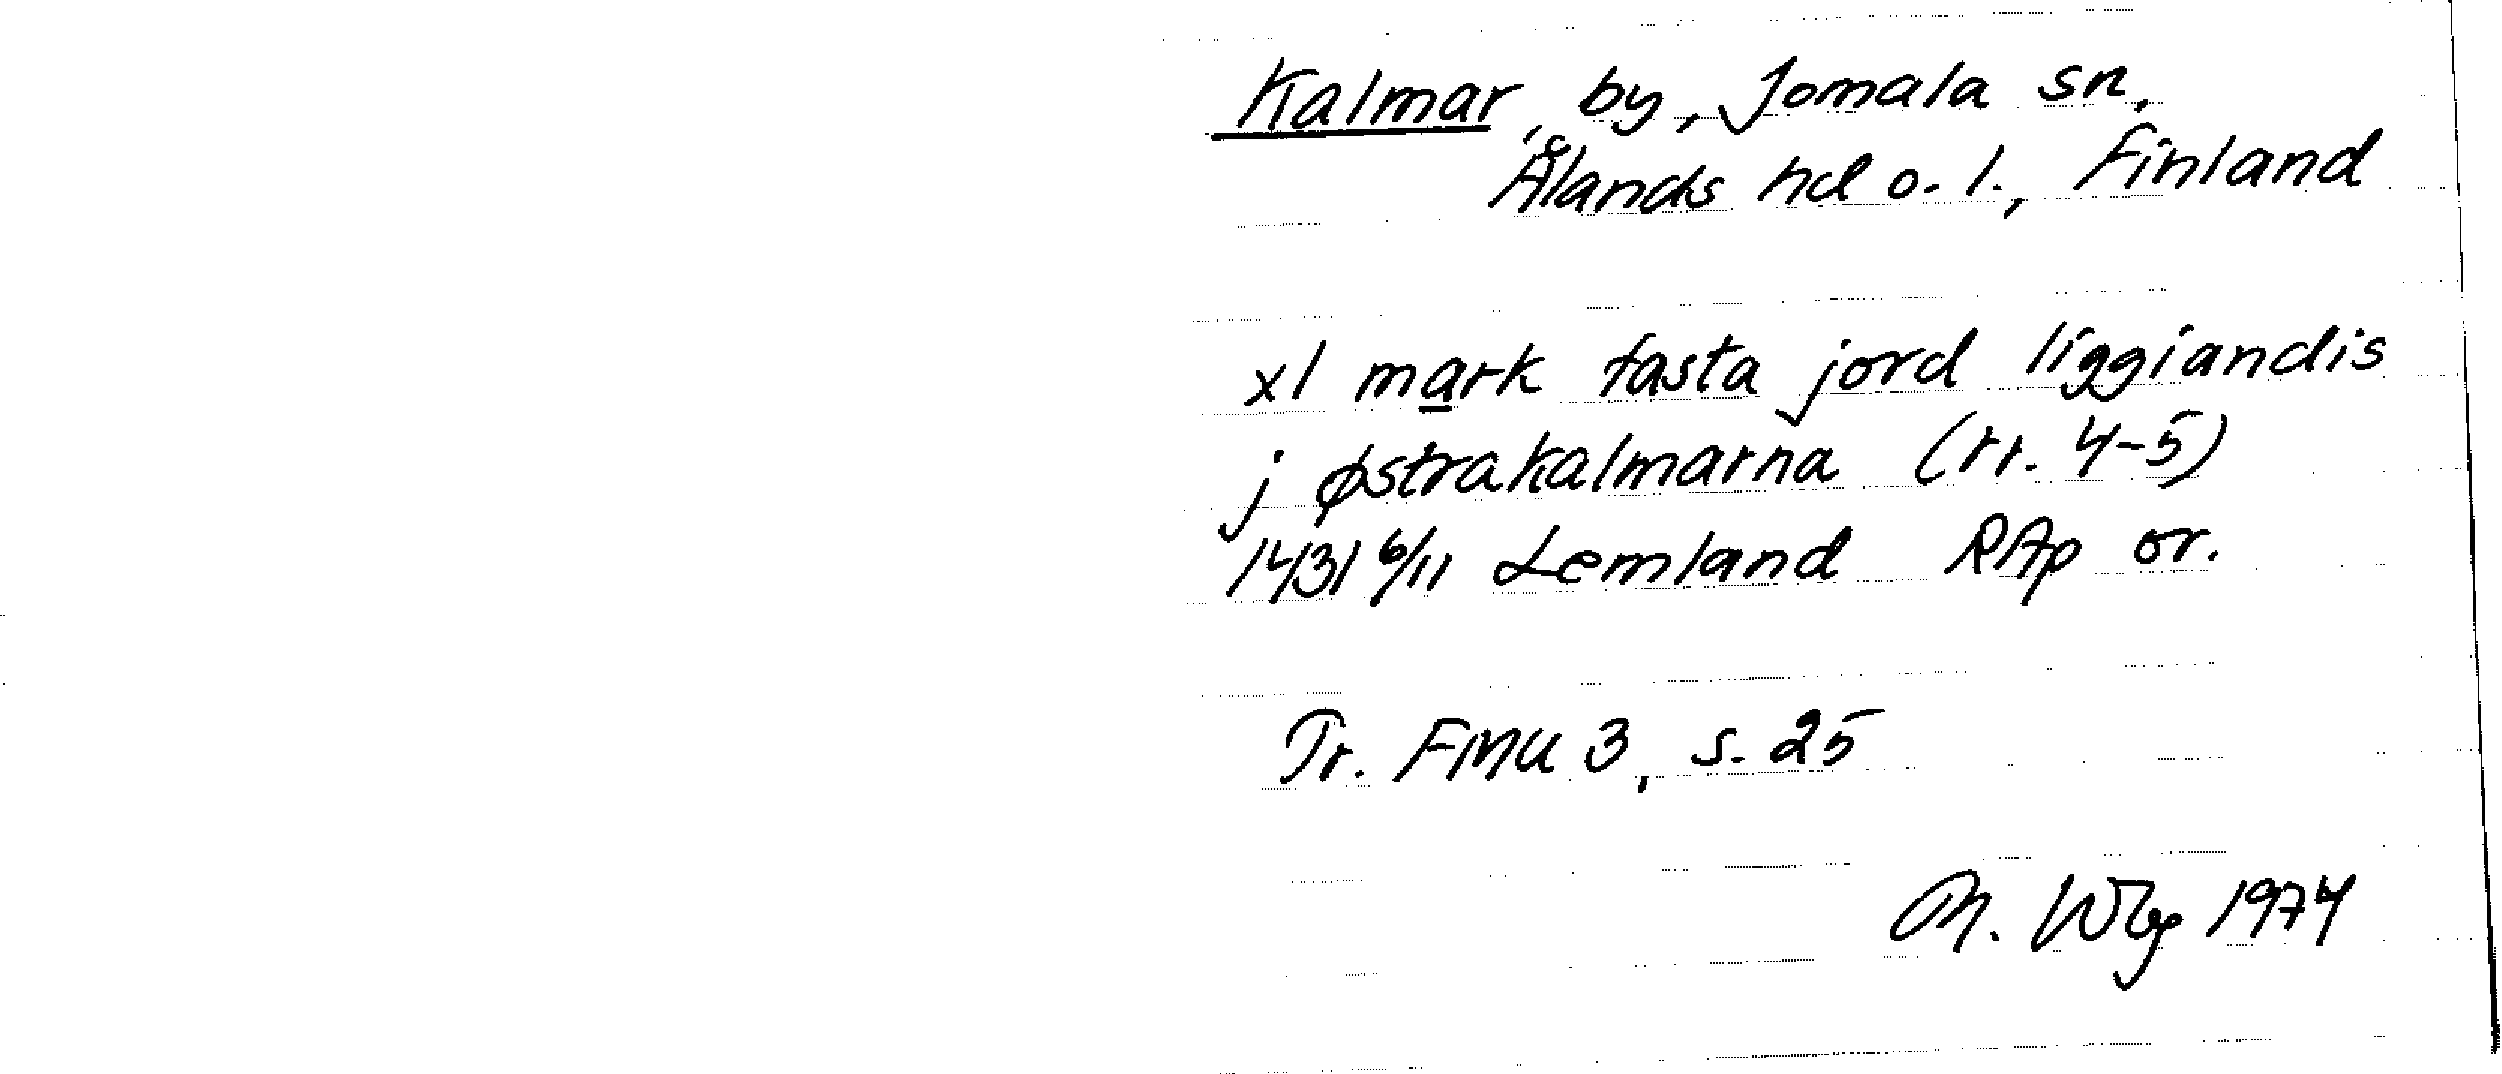 Kalmar, by, Jomala sn,
Ålands hd o. l., Finland
xl mark fasta jord liggiandis
j østrakalmarna (rr. 4-5)
1431 6/11 Lemland RAp or.
Tr. FMU 3, s. 25
Th. Wbg 1974